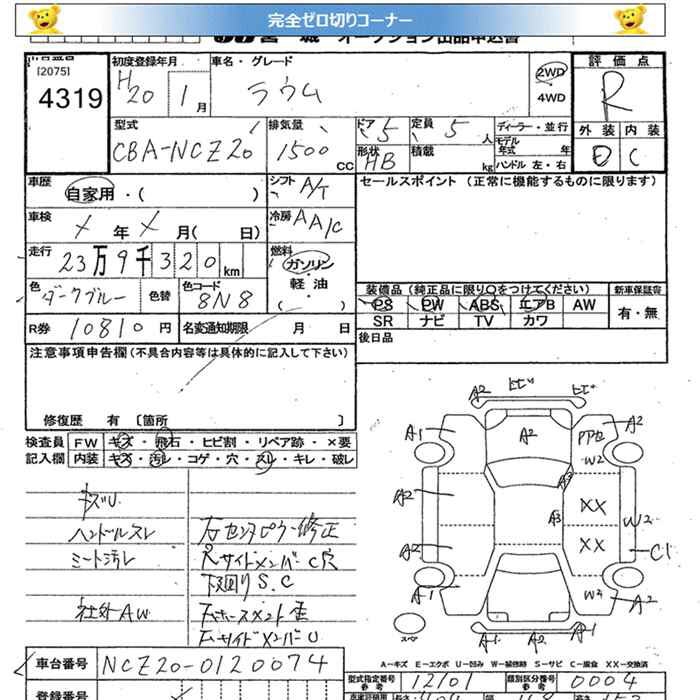 完全ゼロ切りコーナー
宮 城 オークション出品申込書
出品番号
[2075]
4319
初度登録年月
H20 1月
車名・グレード
ラウム
2WD
4WD
評価点
R
外装 内装
D C
型式
CBA-NCZ20
排気量
1500 CC
ドア 5
定員 5 人
形状 HB
積載 kg
ディーラー・並行
モデル年式 年
ハンドル 左・右
車歴
自家用・( )
シフト A/T
セールスポイント (正常に機能するものに限ります)
車検
X 年 X 月( 日)
冷房 AA/C
走行
23万9千320km
燃料
ガソリン
軽・油
( ・ )
色
ダークブルー
色替
色コード
8N8
装備品(純正品に限り〇をつけてください)
新車保証書
PS PW ABS エアB AW
SR ナビ TV カワ
有・無
R券 10810円
名変通知期限 月 日
後日品
注意事項申告欄(不具合内容等は具体的に記入して下さい)
修復歴 有 〔箇所 〕
検査員
記入欄
FW キズ・飛石・ヒビ割・リペア跡・×要
内装 キズ・汚レ・コゲ・穴・スレ・キレ・破レ
キズU
ハンドルスレ
シート汚レ
社外AW
右センタピラー修正
サイドメンバーC穴
下廻りS.C
右ホースメント歪
右サイドメンバーU
A2 ヒビ ヒビ
A1 A2 A2
W2
A3
A2 A3 XX W2
A2 XX C1
A1 W3 A2
スペ
A1 A2 A1
A-キズ E-エクボ U-凹み W-補修跡 S-サビ C-腐食 XX-交換済
車台番号 NCZ20-0120074
型式指定番号 12101
類別区分番号 0004
参考
登録番号